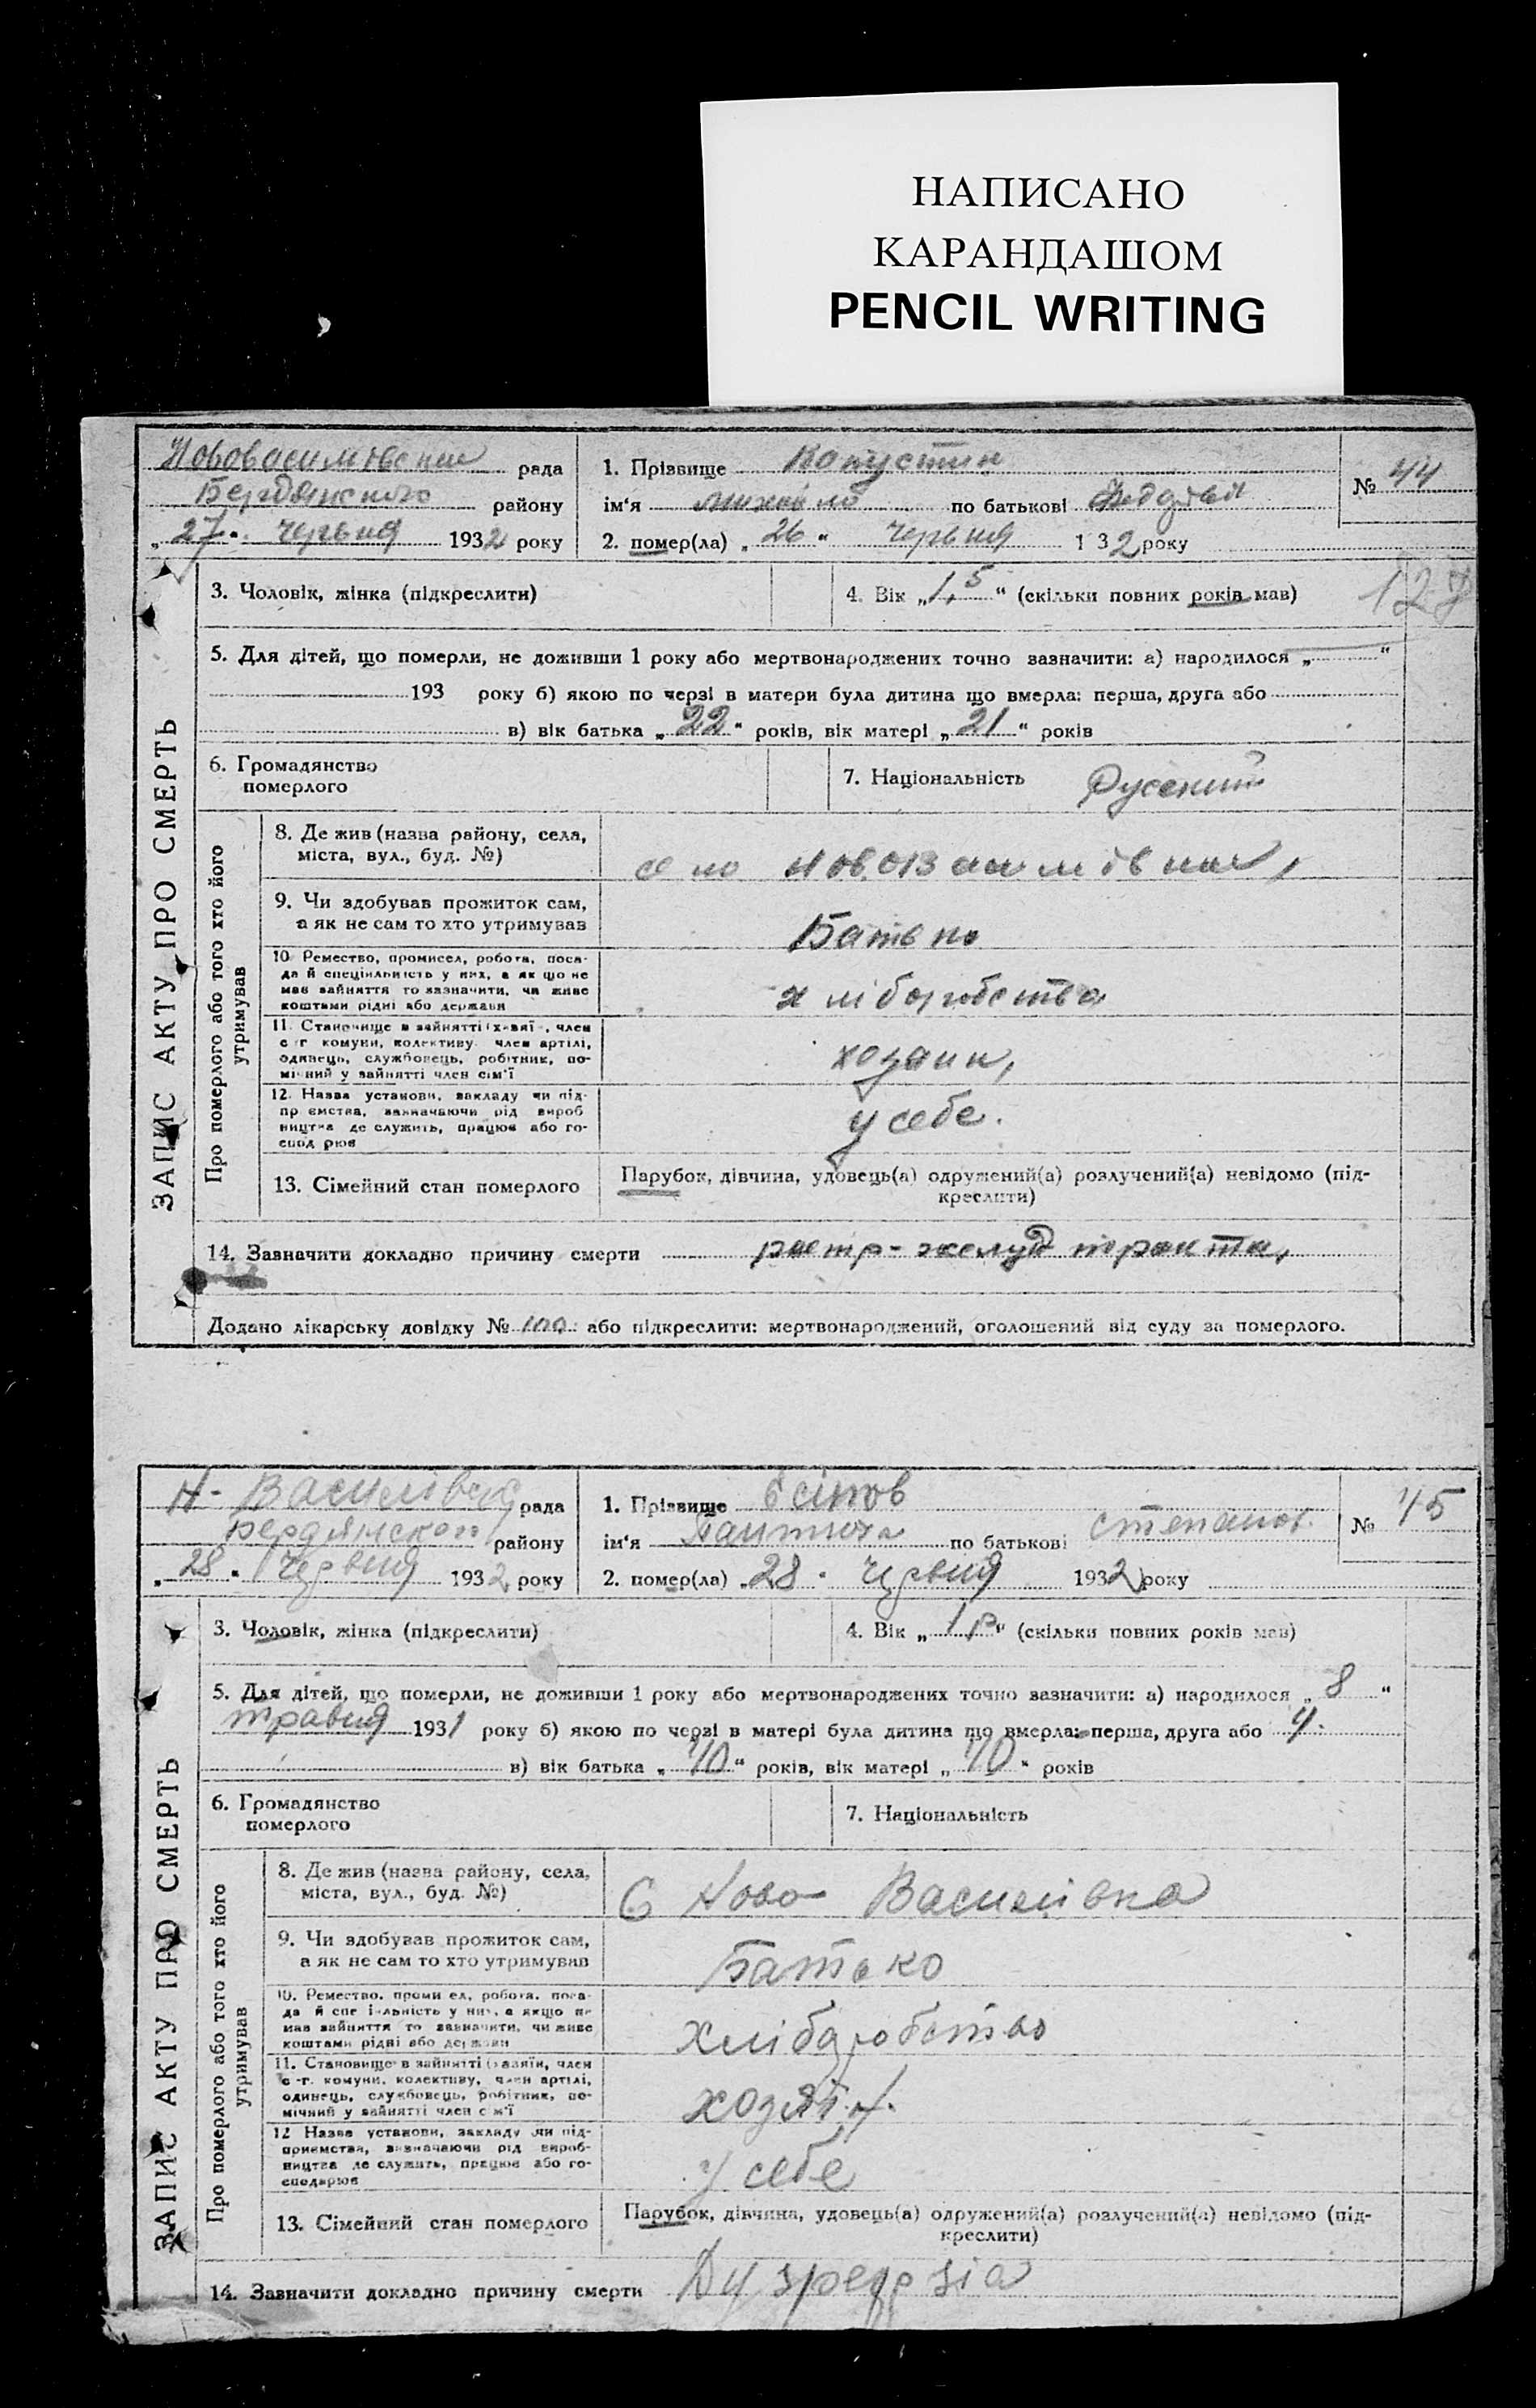 НАПИСАНО
КАРАНДАШОМ
PENCIL WRITING
рада
Бердянского району
„ 27 “ Червня 1932 року
1. Прізвище Капустин
ім‘я Михайло по батькові
2. помер(ла) „ 26 “ Червня 1 32 року
№ 44
3. Чоловік, жінка (підкреслити)
4. Вік „ 1,5 “ (скільки повних років мав)
5. Для дітей, що померли, не доживши 1 року або мертвонароджених точно зазначити: а) народилося „ “
193 року б) якою по черзі в матери була дитина що вмерла: перша, друга або
в) вік батька „ 22 “ років, вік матері „ 21 “ років
6. Громадянство
померлого
7. Національність Русский
ЗАПИС АКТУ ПРО СМЕРТЬ
Про померлого або того хто його
утримував
8. Де жив (назва району, села,
міста, вул., буд. №)
село
9. Чи здобував прожиток сам,
а як не сам то хто утримував
Батько
10. Ремество, промисел, робота, поса-
да й спеціяльність у них, а як що не
мав зайняття то зазначити, чи живе
коштами рідні або держави
хліборобство
11. Становище в зайнятті (хазяї , член
с г комуни, колективу член артілі,
одинець, службовець, робітник, по-
мічний у зайнятті член сім‘ї
хозаин,
12. Назва установи, закладу чи під-
пр ємства, зазначаючи рід вироб
ництва де служить, працює або го-
спод рює
у себе.
13. Сімейний стан померлого
Парубок, дівчина, удовець(а) одружений(а) розлучений(а) невідомо (під-
креслити)
14. Зазначити докладно причину смерти растр-желуд тракта,
Додано лікарську довідку № 100 або підкреслити: мертвонароджений, оголошений від суду за померлого.
Н- Василівка рада
Бердянского району
„ 28 “ Червня 1932 року
1. Прізвище Есіпов
ім‘я по батькові Степанов.
2. помер(ла) „ 28 “ Червня 1932 року
№ 45
3. Чоловік, жінка (підкреслити)
4. Вік „ 1 р “ (скільки повних років мав)
5. Для дітей, що померли, не доживши 1 року або мертвонароджених точно зазначити: а) народилося „ 8 “
травня 1931 року б) якою по черзі в матері була дитина що вмерла: перша, друга або 4.
в) вік батька „ 40 “ років, вік матері „ 40 “ років
6. Громадянство
померлого
7. Національність
ЗАПИС АКТУ ПРО СМЕРТЬ
Про померлого або того хто його
утримував
8. Де жив (назва району, села,
міста, вул., буд. №)
С Ново Василівка
9. Чи здобував прожиток сам,
а як не сам то хто утримував
Батько
10. Ремество, проми ел, робота, поса-
да й спе іяльність у них, а якщо не
мав зайняття то зазначити, чи живе
коштами рідні або держави
хліборобство
11. Становище в зайнятті (хазяїн, член
с-г. комуни, колективу, член артілі,
одинець, службовець, робітник, по-
мічний у зайнятті член сім‘ї
хозяїн.
12 Назва установи, закладу чи під-
приємства, зазначаючи рід вироб-
ництва де служить, працює або го-
сподарює
у себе
13. Сімейний стан померлого
Парубок, дівчина, удовець(а) одружений(а) розлучений(а) невідомо (під-
креслити)
14. Зазначити докладно причину смерти Dyspepsia